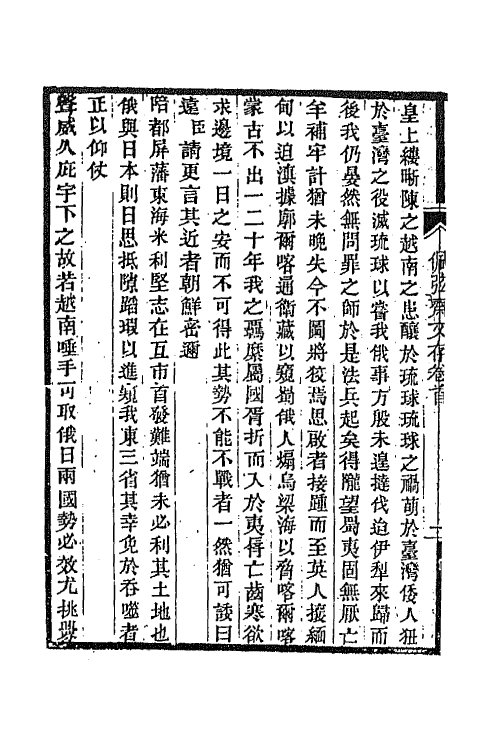 皇上縷晰陳之越南之患釀於琉球琉球之禍萌於臺灣倭人狃
於臺灣之役滅琉球以嘗我俄事方殷未遑撻伐迨伊犁來歸而
後我仍晏然無問罪之師於是法兵起矣得隴望蜀夷固無厭亡
羊補牢計猶未晚失今不圖將彼焉思啟者接踵而至英人援緬
甸以迫滇據廓爾喀通衛藏以窺坳俄人煽烏梁海以脅喀爾喀
蒙古不出一二十年我之羈縻屬國胥折而入於夷脣亡齒寒欲
求邊境一日之安而不可得此其勢不能不戰者一然猶可諉曰
遠臣請更言其近者朝鮮密邇
陪都屏藩東海米利堅志在互市首發難端猶未必利其土地也
俄與日本則日思抵隙蹈瑕以進窺我東三省其幸免於吞噬者
正以仰仗
聲威久庇宇下之故若越南唾手可取俄日兩國勢必效尤挑釁
佩弦齋文存卷首
二